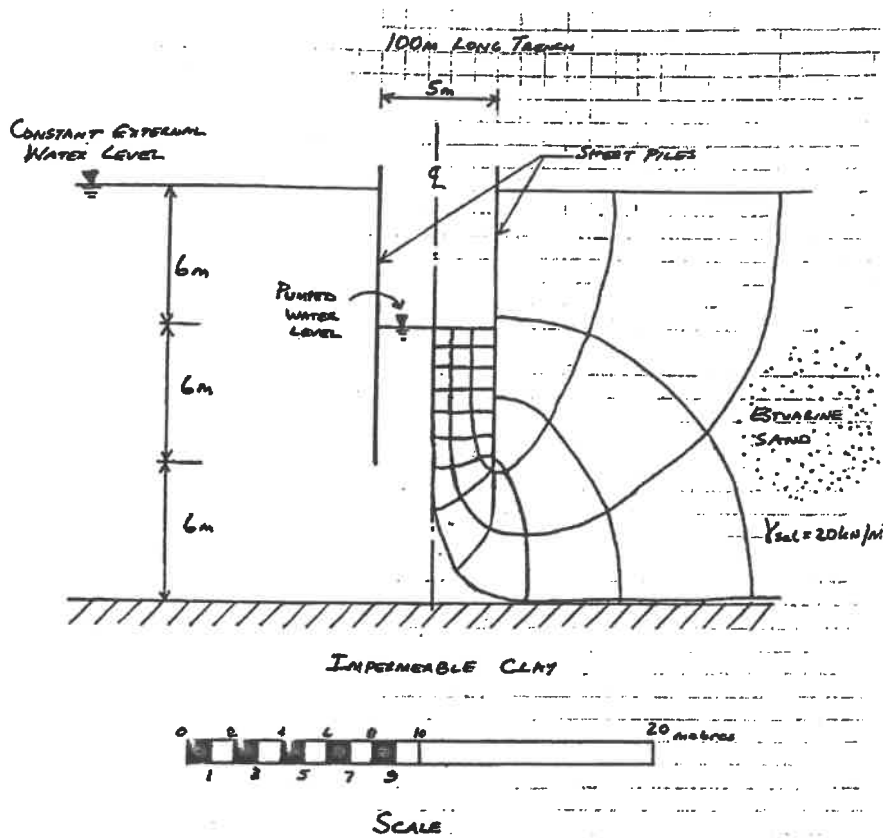 100M LONG TRENCH
5m
CONSTANT EXTERNAL
WATER LEVEL
SHEET PILES
℄
6m
PUMPED
WATER
LEVEL
6m
ESTUARINE
SAND
6m
γsat = 20 kN/m
IMPERMEABLE CLAY
0 2 4 6 8 10 20 metres
1 3 5 7 9
SCALE